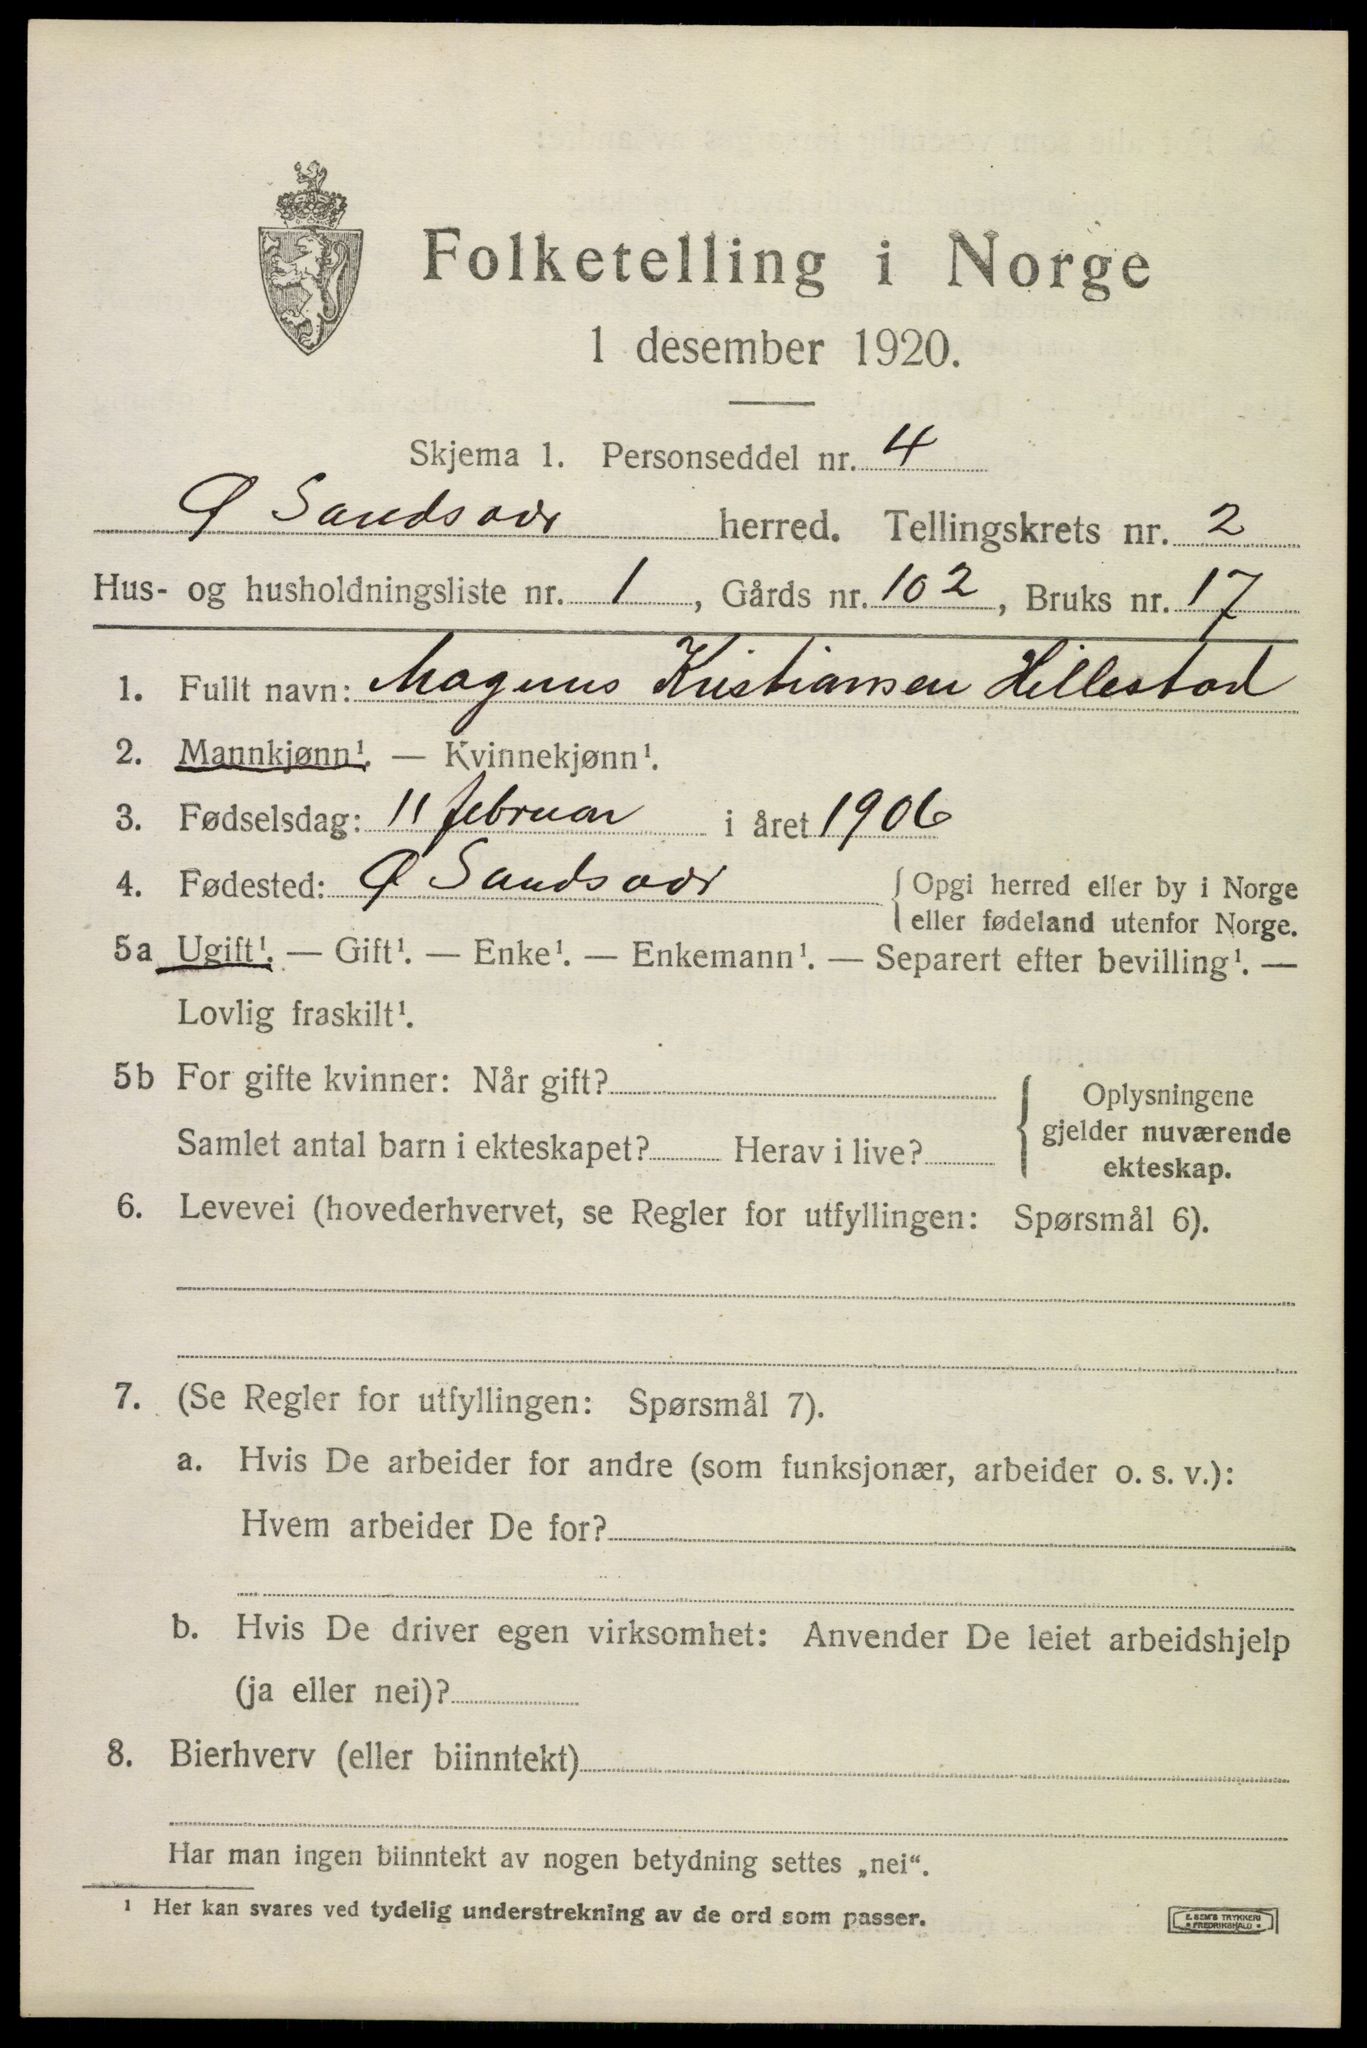 Folketelling i Norge
1 desember 1920.
Skjema 1. Personseddel nr. 4
Ø Sandsvær herred. Tellingskrets nr. 2
Hus- og husholdningsliste nr. 1, Gårds nr. 102, Bruks nr. 17
1. Fullt navn: Magnus Kristiansen Hillestad
2. Mannkjønn¹. — Kvinnekjønn¹.
3. Fødselsdag: 11 februar i året 1906
4. Fødested: Ø Sandsvær { Opgi herred eller by i Norge
eller fødeland utenfor Norge.
5a Ugift¹. — Gift¹. — Enke¹. — Enkemann¹. — Separert efter bevilling¹. —
Lovlig fraskilt¹.
5b For gifte kvinner: Når gift?
Samlet antal barn i ekteskapet? Herav i live?
{ Oplysningene
gjelder nuværende
ekteskap.
6. Levevei (hovederhvervet, se Regler for utfyllingen: Spørsmål 6).
7. (Se Regler for utfyllingen: Spørsmål 7).
a. Hvis De arbeider for andre (som funksjonær, arbeider o. s. v.):
Hvem arbeider De for?
b. Hvis De driver egen virksomhet: Anvender De leiet arbeidshjelp
(ja eller nei)?
8. Bierhverv (eller biinntekt)
Har man ingen biinntekt av nogen betydning settes „nei“.
¹ Her kan svares ved tydelig understrekning av de ord som passer.
E. SEM'S TRYKKERI
* FREDRIKSHALD *